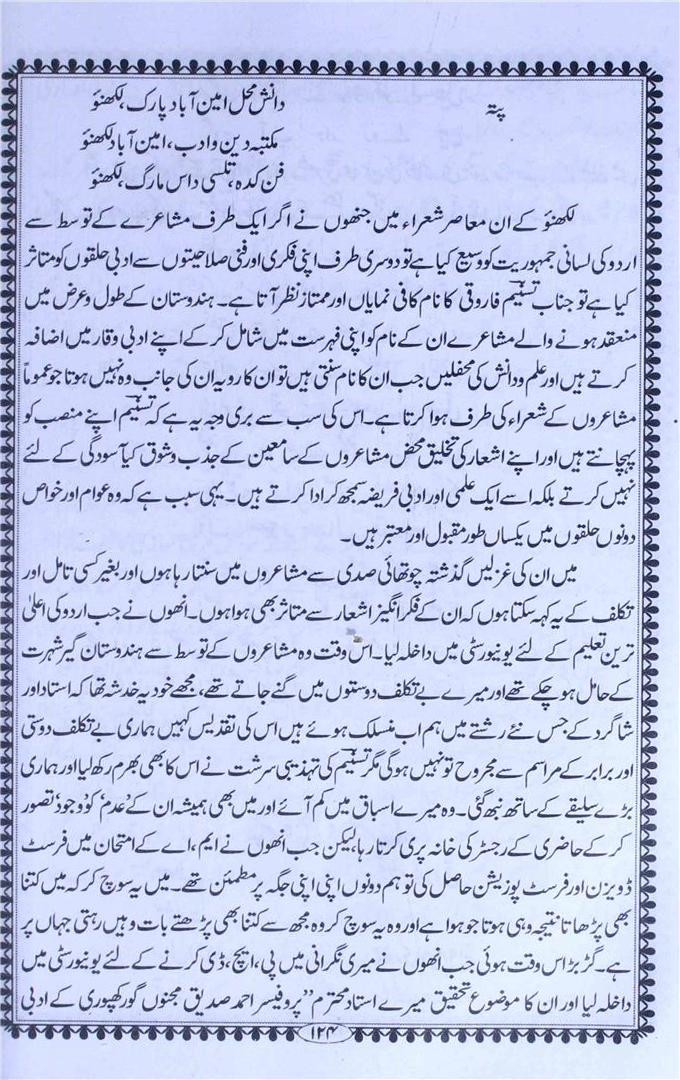 پتہ
دانش محل امین آباد پارک، لکھنؤ
مکتبہ دین و ادب، امین آباد لکھنؤ
فن کدہ، تلسی داس مارگ، لکھنؤ
لکھنؤ کے ان معاصر شعراء میں جنھوں نے اگر ایک طرف مشاعرے کے توسط سے
اردو کی لسانی جمہوریت کو وسیع کیا ہے تو دوسری طرف اپنی فکری اور فنی صلاحیتوں سے ادبی حلقوں کو متاثر
کیا ہے تو جناب تسنیم فاروقی کا نام کافی نمایاں اور ممتاز نظر آتا ہے۔ ہندوستان کے طول و عرض میں
منعقد ہونے والے مشاعرے ان کے نام کو اپنی فہرست میں شامل کر کے اپنے ادبی وقار میں اضافہ
کرتے ہیں اور علم و دانش کی محفلیں جب ان کا نام سنتی ہیں تو ان کا رویہ ان کی جانب وہ نہیں ہوتا جو عموماً
مشاعروں کے شعراء کی طرف ہوا کرتا ہے۔ اس کی سب سے بری وجہ یہ ہے کہ تسنیم اپنے منصب کو
پہچانتے ہیں اور اپنے اشعار کی تخلیق محض مشاعروں کے سامعین کے جذب و شوق کیآ سودگی کے لئے
نہیں کرتے بلکہ اسے ایک علمی اور ادبی فریضہ سمجھ کر ادا کرتے ہیں۔ یہی سبب ہے کہ وہ عوام اور خواص
دونوں حلقوں میں یکساں طور مقبول اور معتبر ہیں۔
میں ان کی غزلیں گذشتہ چوتھائی صدی سے مشاعروں میں سنتا رہا ہوں اور بغیر کسی تامل اور
تکلف کے یہ کہہ سکتا ہوں کہ ان کے فکر انگیز اشعار سے متاثر بھی ہوا ہوں۔ انھوں نے جب اردو کی اعلیٰ
ترین تعلیم کے لئے یونیورسٹی میں داخلہ لیا۔ اس وقت وہ مشاعروں کے توسط سے ہندوستان گیر شہرت
کے حامل ہو چکے تھے اور میرے بے تکلف دوستوں میں گنے جاتے تھے، مجھے خود یہ خدشہ تھا کہ استاد اور
شاگرد کے جس نئے رشتے میں ہم اب منسلک ہوئے ہیں اس کی تقدیس کہیں ہماری بے تکلف دوستی
اور برابر کے مراسم سے مجروح تو نہیں ہوگی مگر تسنیم کی تہذیبی سرشت نے اس کا بھی بھرم رکھ لیا اور ہماری
بڑے سلیقے کے ساتھ نبھ گئی۔ وہ میرے اسباق میں کم آئے اور میں بھی ہمیشہ ان کے 'عدم' کو 'وجود' تصور
کر کے حاضری کے رجسٹر کی خانہ پری کرتا رہا، لیکن جب انھوں نے ایم، اے کے امتحان میں فرسٹ
ڈویزن اور فرسٹ پوزیشن حاصل کی تو ہم دونوں اپنی اپنی جگہ پر مطمئن تھے۔ میں یہ سوچ کر کہ میں کتنا
بھی پڑھاتا نتیجہ وہی ہوتا جو ہوا ہے اور وہ یہ سوچ کر وہ مجھ سے کتنا بھی پڑھتے بات وہیں رہتی جہاں پر
ہے۔ گڑبڑ اس وقت ہوئی جب انھوں نے میری نگرانی میں پی، ایچ، ڈی کرنے کے لئے یونیورسٹی میں
داخلہ لیا اور ان کا موضوع تحقیق میرے استاد محترم "پروفیسر احمد صدیق مجنوں گورکھپوری کے ادبی
۱۲۴